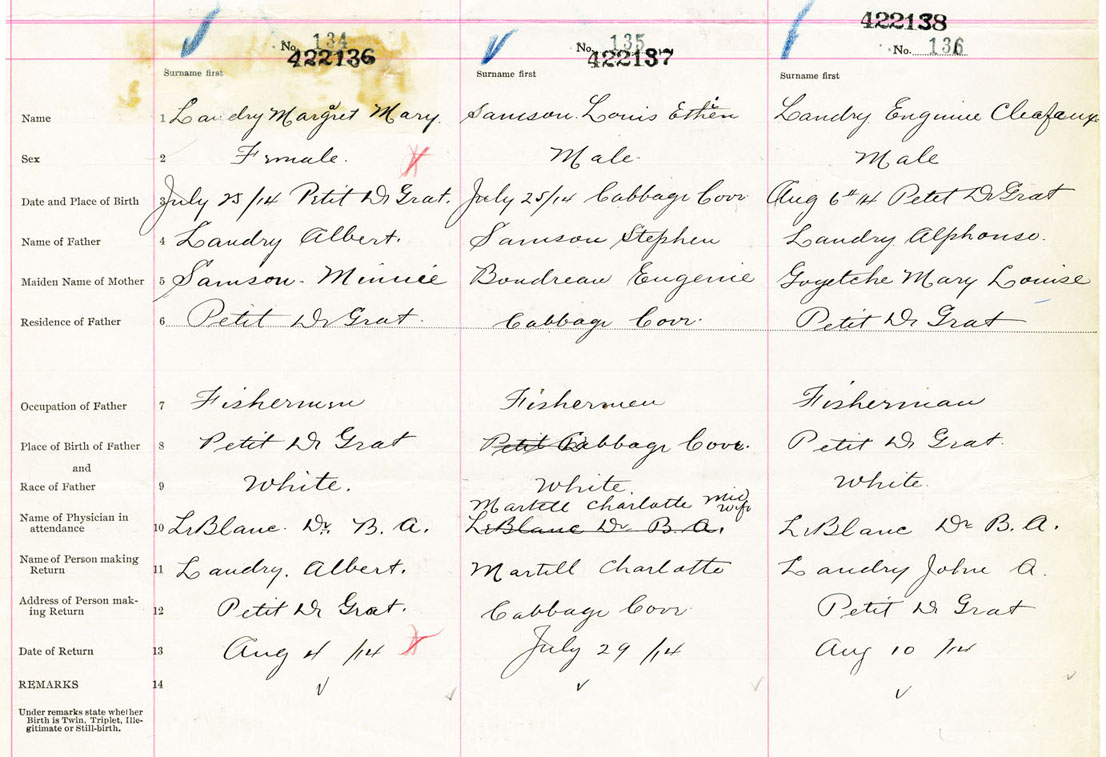 422138
No. 134 No. 135 No. 136
422136 422137
Surname first Surname first Surname first
Name 1 Landry Margret Mary. Samson. Louis Landry Cleafaux
Sex 2 Female. Male. Male
Date and Place of Birth 3 July 25/14 Petit De Grat. July 25/14 Cabbage Cove Aug 6th 14 Petit De Grat
Name of Father 4 Landry Albert. Samson Stephen Landry Alphonse.
Maiden Name of Mother 5 Samson. Minnie Boudreau Eugenie Goyetche Mary Louise
Residence of Father 6 Petit De Grat. Cabbage Cove. Petit De Grat
Occupation of Father 7 Fisherman Fishermen Fisherman
Place of Birth of Father 8 Petit De Grat Petit Cabbage Cove. Petit De Grat.
and
Race of Father 9 White. White. White.
Martell Charlotte mid
wife
Name of Physician in 10 LeBlanc. Dr. B. A. LeBlanc Dr B. A. LeBlanc Dr B. A.
attendance
Name of Person making 11 Landry. Albert. Martell Charlotte Landry John A.
Return
Address of Person mak- 12 Petit De Grat. Cabbage Cove Petit De Grat
ing Return
Date of Return 13 Aug 4 /14 July 29 /14 Aug 10 /14
REMARKS 14
Under remarks state whether
Birth is Twin, Triplet, Ille-
gitimate or Still-birth.